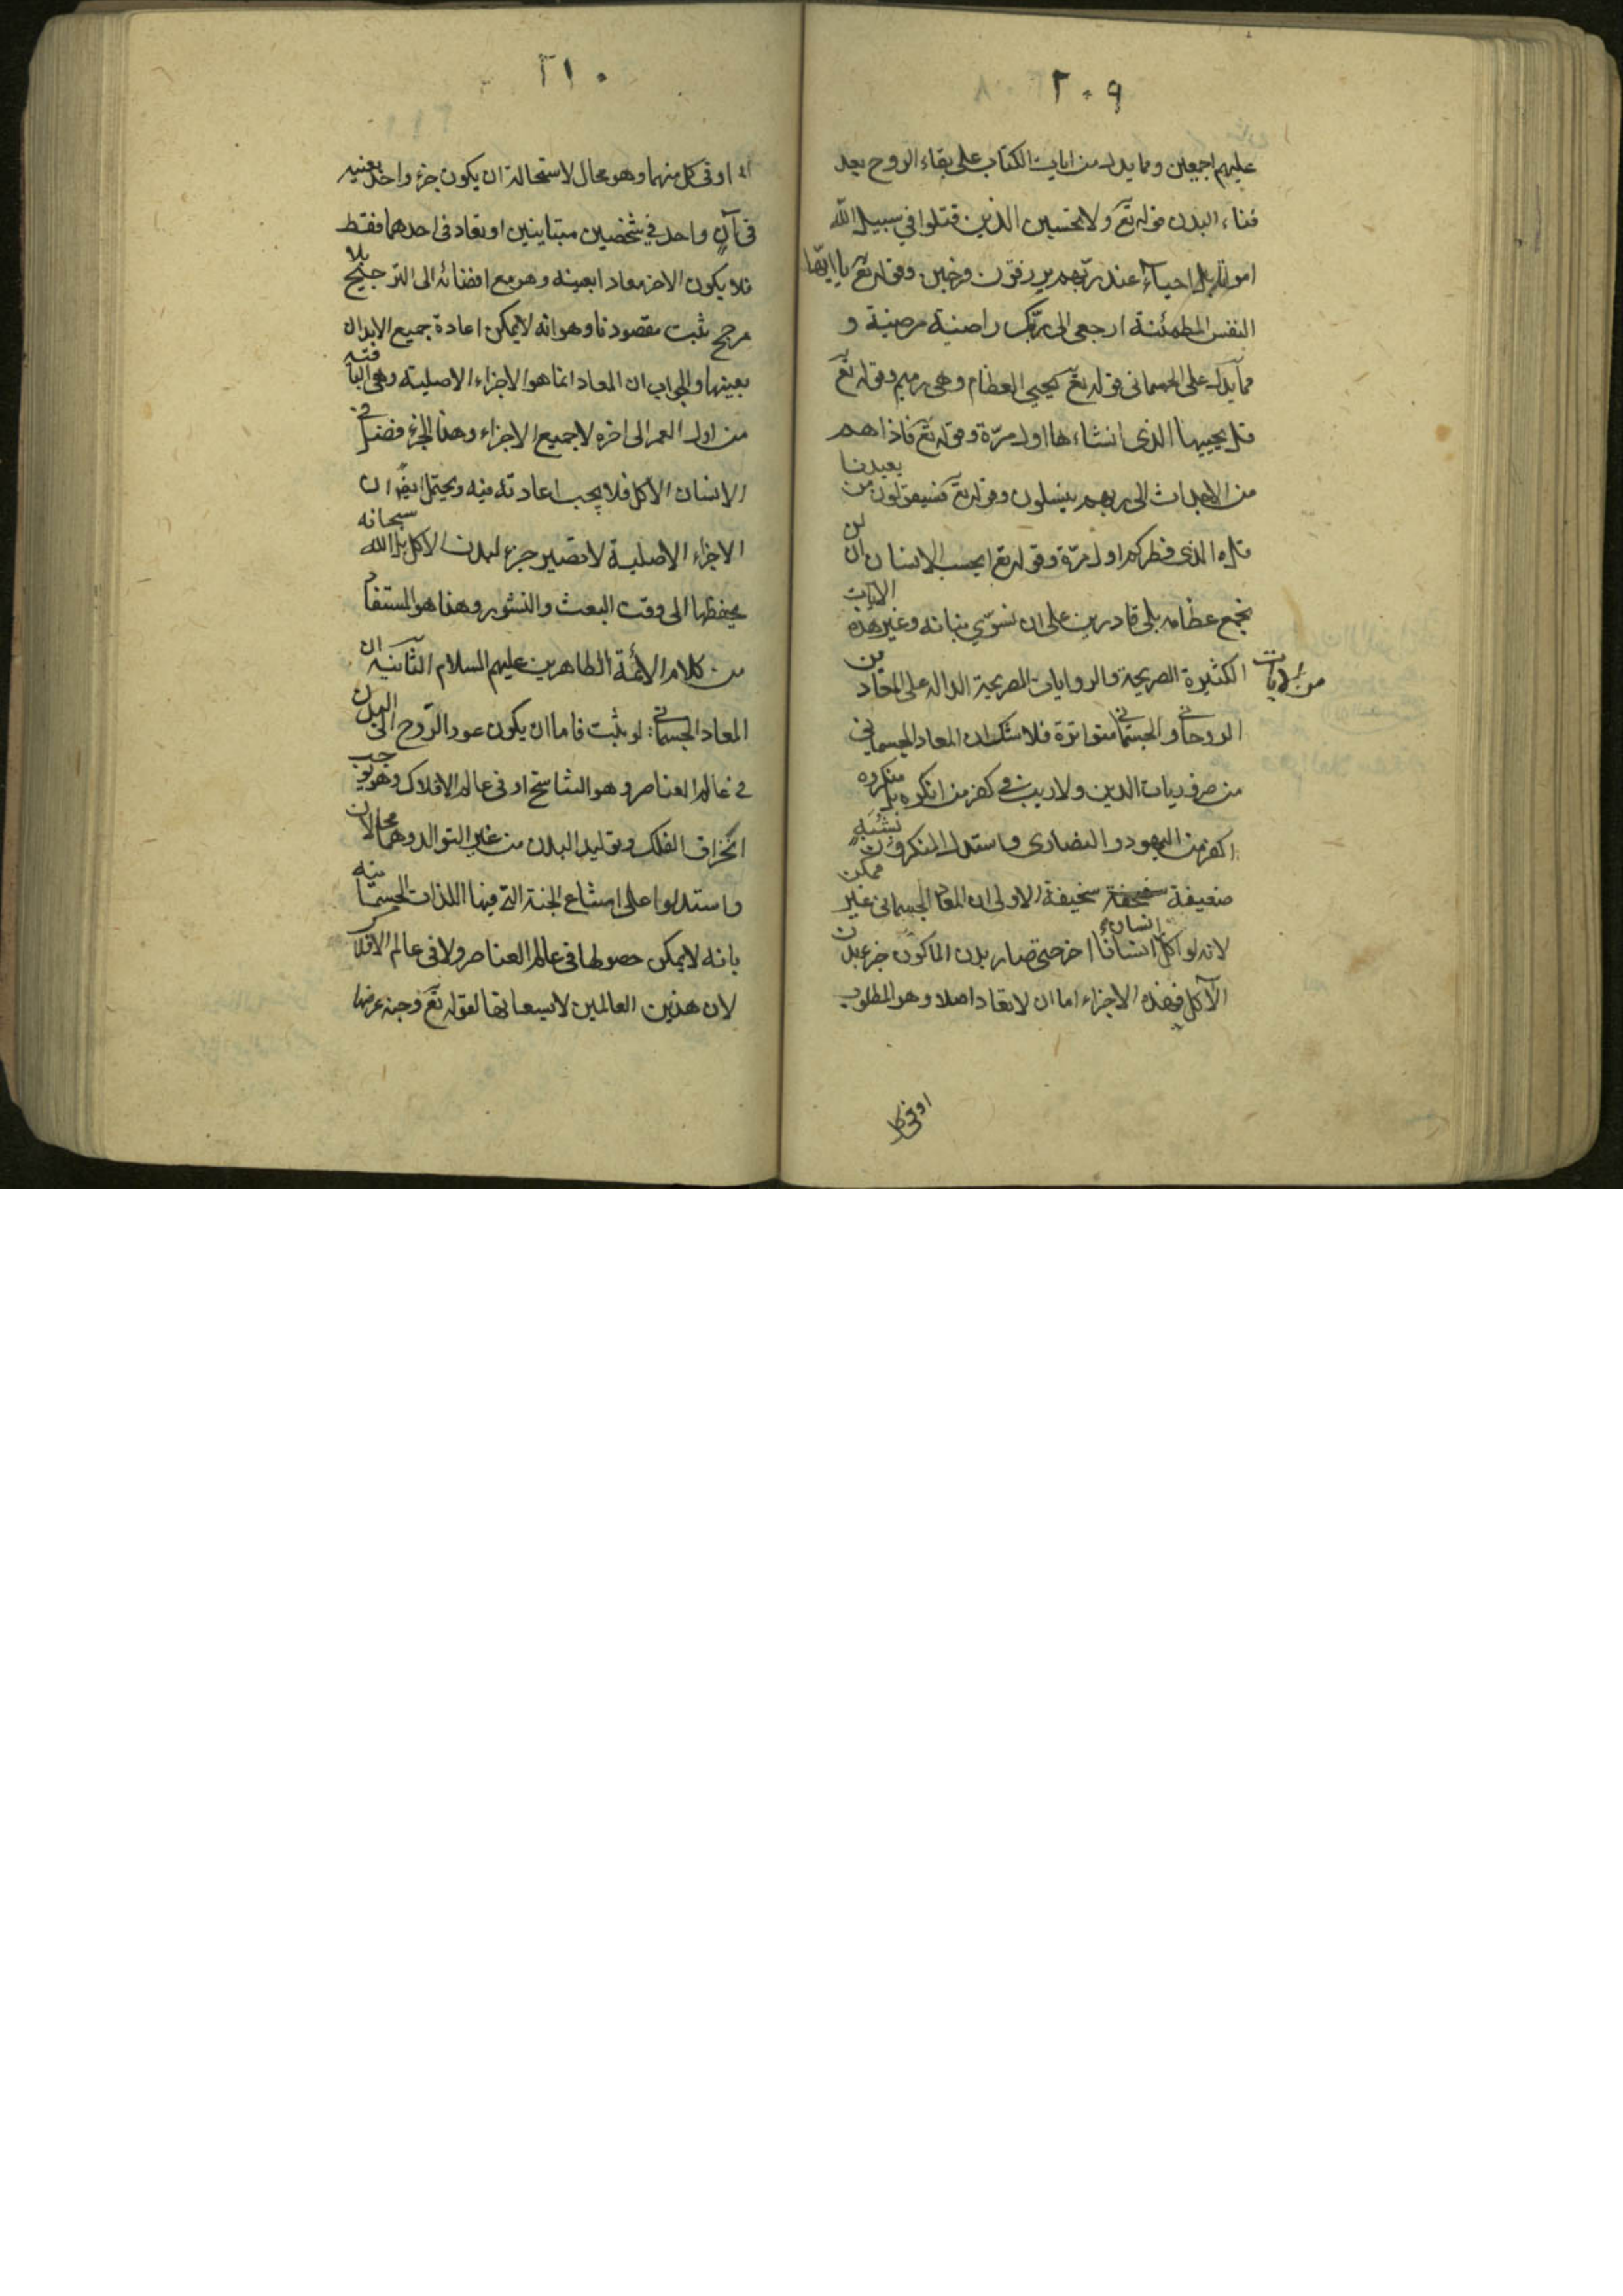 ٢٠٩
عليهم اجمعين ومما يدل من ايات الكتاب على بقاء الروح بعد
فناء البدن قوله تع ولا تحسبن الذين قتلوا في سبيل الله
امواتا بل احياء عند ربهم يرزقون فرحين وقوله تع يا ايتها
النفس المطمئنة ارجعي الى ربك راضية مرضية و
مما يدل على الجسماني قوله تع يحيي العظام وهي رميم وقوله تع
قل يحييها الذي انشاءها اول مرة وقوله تع فاذا هم
من الاجداث الى ربهم ينسلون وقوله تع فسيقولون من يعيدنا
قل الذي فطركم اول مرة وقوله تع ايحسب الانسان ان لن
نجمع عظامه بلى قادرين على ان نسوي بنانه وغير هذه الايات
الكثيرة الصريحة والروايات الصريحة الدالة على المعاد من
الروحاني والجسماني متواترة فلا شك ان المعاد الجسماني
من ضروريات الدين ولا ريب في كفر من انكره بل منكروه
اكفر من اليهود والنصارى واستدل المنكرون بشبه
ضعيفة سخيفة الاولى ان المعاد الجسماني غير ممكن
لانه لو اكل انسان انسانا اخر حتى صار بدن الماكول جزء بدن
الآكل فهذه الاجزاء اما ان لا تعاد اصلا وهو المطلوب
او في كل
٢١٠
او في كل منهما وهو محال لاستحالة ان يكون جزء واحد بعينه
في آن واحد في شخصين متباينين او تعاد في احدهما فقط
فلا يكون الاخر معادا بعينه وهو مع افضائه الى الترجيح بلا
مرجح ثبت مقصودنا وهو انه لا يمكن اعادة جميع الابدان
بعينها والجواب ان المعاد انما هو الاجزاء الاصلية وهي الباقية
من اول العمر الى اخره لا جميع الاجزاء وهذا الجزء فضل في
الانسان الاكل فلا يجب اعادته فيه ويحتمل ايضا ان
الاجزاء الاصلية لا تصير جزء لبدن الاكل بل الله سبحانه
يحفظها الى وقت البعث والنشور وهذا هو المستفاد
من كلام الائمة الطاهرين عليهم السلام الثانية ان
المعاد الجسماني لو ثبت فاما ان يكون عود الروح الى البدن
في عالم العناصر وهو التناسخ او في عالم الافلاك وهو يوجب
انخراق الفلك وتوليد البدن من غير التوالد وهما محالان
واستدلوا على امتناع الجنة التي فيها اللذات الجسمانية
بانه لا يمكن حصولها في عالم العناصر ولا في عالم الافلاك
لان هذين العالمين لا يسعانها لقوله تع وجنة عرضها